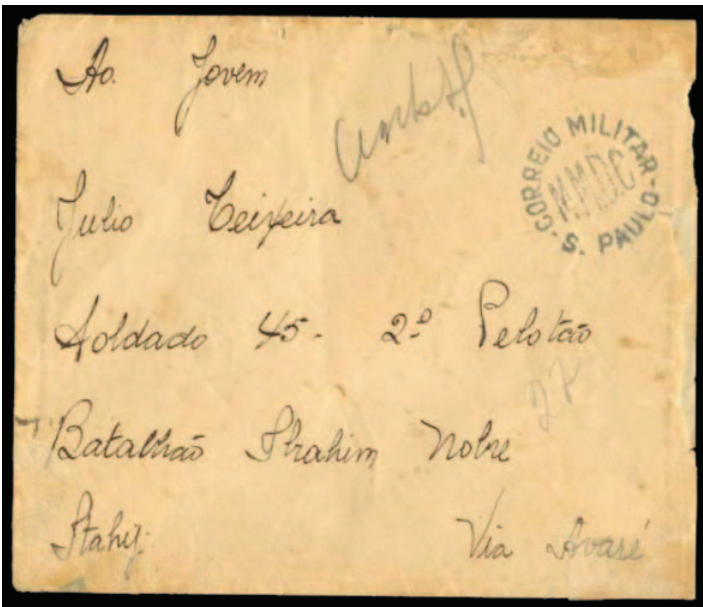 Ao. Jovem
CORREIO MILITAR
M.M.D.C.
S. PAULO
Julio Teixeira
Soldado 45 - 2º Pelotão
27
Batalhão Ibrahim Nobre
Itahy. Via Avaré